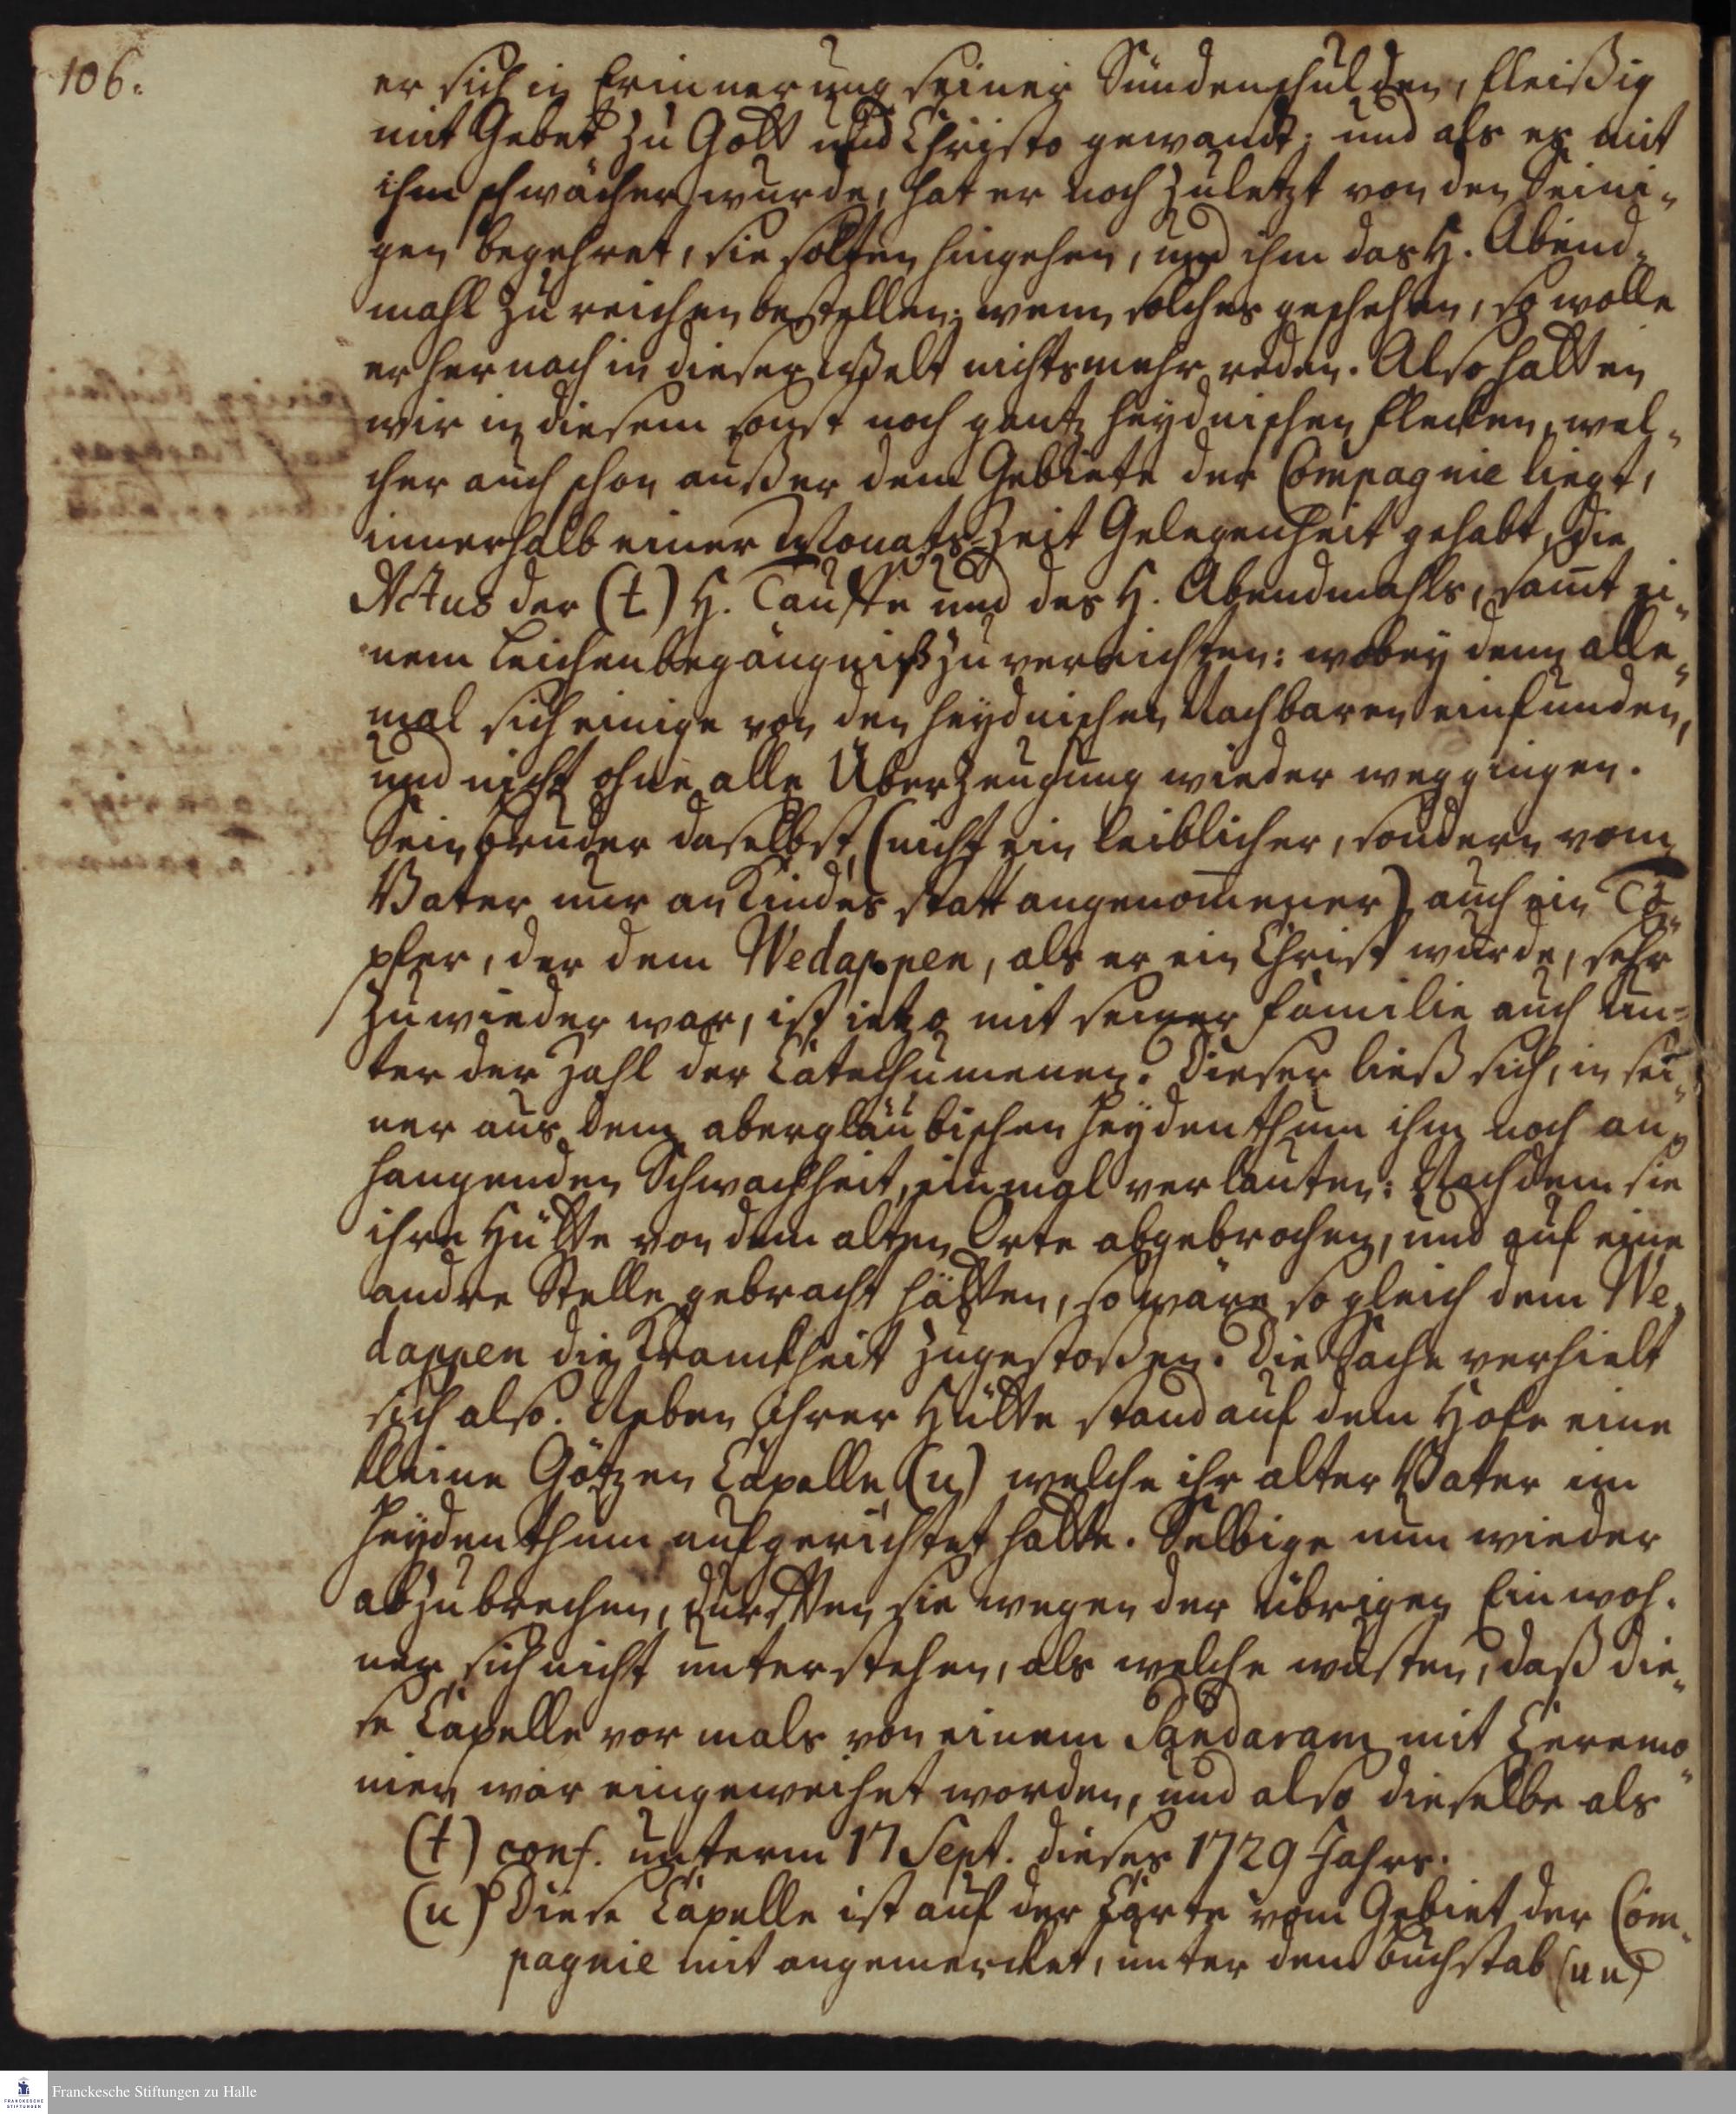 106.
er sich in Erinnerung seiner Sündenschulden, fleißig
mit Gebet zu Gott und Christo gewandt; und als es mit
ihm schwächer wurde, hat er noch zuletzt von den Seini-
gen begehret, sie solten hingehen, und ihm das H. Abend-
mahl zu reichen bestellen; wenn solches geschehen, so wolle
er hernach in dieser Welt nichts mehr reden. Also hatten
wir in diesem sonst noch gantz heydnischen Flecken, wel-
cher auch schon außer dem Gebiete der Compagnie liegt,
innerhalb einer Monats-Zeit Gelegenheit gehabt, die
Actus der (t) H. Tauffe und des H. Abendmahls, samt ei-
nem Leichenbegängniß zu verrichten: wobey denn alle-
mal sich einige von den heydnischen Nachbaren einfunden,
und nicht ohne alle Überzeugung wieder weggingen.
Sein Bruder daselbst, (nicht ein leiblicher, sondern vom
Vater nur an Kindes statt angenommener) auch ein Tö-
pfer, der dem Wedappen, als er ein Christ wurde, sehr
zuwieder war, ist ietzo mit seiner Familie auch un-
ter der Zahl der Catechumenen. Dieser ließ sich, in sei-
ner aus dem abergläubischen Heydenthum ihm noch an-
hangenden Schwachheit, einmal verlauten: Nachdem sie
ihre Hütte von dem alten Orte abgebrochen, und auf eine
andre Stelle gebracht hätten, so wäre so gleich dem We-
dappen die Kranckheit zugestoßen. Die Sache verhielt
sich also. Neben ihrer Hütte stand auf dem Hofe eine
kleine Götzen Capelle (u) welche ihr alter Vater im
Heydenthum aufgerichtet hatte. Selbige nun wieder
abzubrechen, durfften sie wegen der übrigen Einwoh-
ner sich nicht unterstehen, als welche wusten, daß die-
se Capelle vormals von einem Pandaram mit Ceremo-
nien war eingeweihet worden, und also dieselbe als
(t) conf. unterm 17 Sept. dieses 1729 Jahrs.
(u) Diese Capelle ist auf der Carte vom Gebiet der Com-
pagnie mit angemercket, unter dem Buchstab (uu)
Franckesche Stiftungen zu Halle